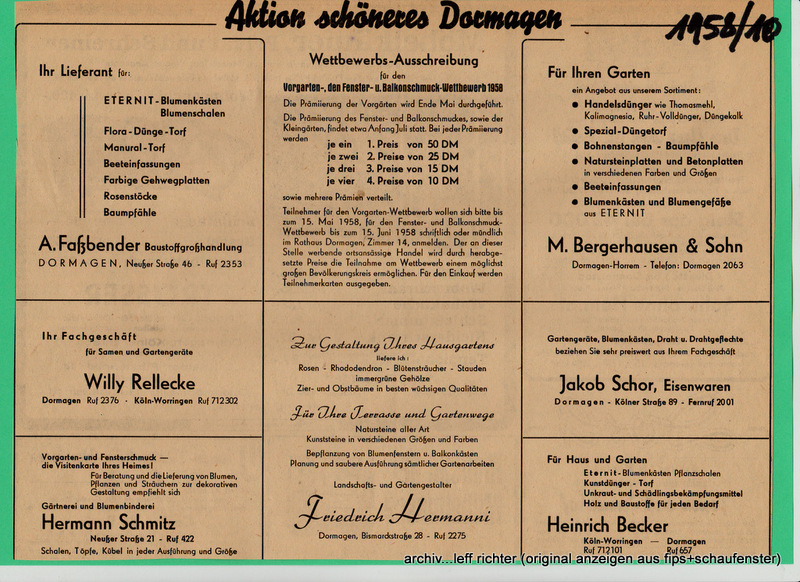 Aktion schöneres Dormagen
1958/10
Ihr Lieferant für:
ETERNIT-Blumenkästen
Blumenschalen
Flora-Dünge-Torf
Manural-Torf
Beeteinfassungen
Farbige Gehwegplatten
Rosenstöcke
Baumpfähle
A. Faßbender Baustoffgroßhandlung
DORMAGEN, Neußer Straße 46 - Ruf 2353
Wettbewerbs-Ausschreibung
für den
Vorgarten-, den Fenster- u. Balkonschmuck-Wettbewerb 1958
Die Prämiierung der Vorgärten wird Ende Mai durchgeführt.
Die Prämiierung des Fenster- und Balkonschmuckes, sowie der
Kleingärten, findet etwa Anfang Juli statt. Bei jeder Prämiierung
werden
je ein 1. Preis von 50 DM
je zwei 2. Preise von 25 DM
je drei 3. Preise von 15 DM
je vier 4. Preise von 10 DM
sowie mehrere Prämien verteilt.
Teilnehmer für den Vorgarten-Wettbewerb wollen sich bitte bis
zum 15. Mai 1958, für den Fenster- und Balkonschmuck-
Wettbewerb bis zum 15. Juni 1958 schriftlich oder mündlich
im Rathaus Dormagen, Zimmer 14, anmelden. Der an dieser
Stelle werbende ortsansässige Handel wird durch herabge-
setzte Preise die Teilnahme am Wettbewerb einem möglichst
großen Bevölkerungskreis ermöglichen. Für den Einkauf werden
Teilnehmerkarten ausgegeben.
Für Ihren Garten
ein Angebot aus unserem Sortiment:
● Handelsdünger wie Thomasmehl,
Kalimagnesia, Ruhr-Volldünger, Düngekalk
● Spezial-Düngetorf
● Bohnenstangen - Baumpfähle
● Natursteinplatten und Betonplatten
in verschiedenen Farben und Größen
● Beeteinfassungen
● Blumenkästen und Blumengefäße
aus ETERNIT
M. Bergerhausen & Sohn
Dormagen-Horrem - Telefon: Dormagen 2063
Ihr Fachgeschäft
für Samen und Gartengeräte
Willy Rellecke
Dormagen Ruf 2376 · Köln-Worringen Ruf 712302
Zur Gestaltung Ihres Hausgartens
liefere ich:
Rosen - Rhododendron - Blütensträucher - Stauden
immergrüne Gehölze
Zier- und Obstbäume in besten wüchsigen Qualitäten
Für Ihre Terrasse und Gartenwege
Natursteine aller Art
Kunststeine in verschiedenen Größen und Farben
Bepflanzung von Blumenfenstern u. Balkonkästen
Planung und saubere Ausführung sämtlicher Gartenarbeiten
Landschafts- und Gartengestalter
Friedrich Hermanni
Dormagen, Bismarckstraße 28 - Ruf 2275
Gartengeräte, Blumenkästen, Draht u. Drahtgeflechte
beziehen Sie sehr preiswert aus Ihrem Fachgeschäft
Jakob Schor, Eisenwaren
Dormagen - Kölner Straße 89 - Fernruf 2001
Vorgarten- und Fensterschmuck —
die Visitenkarte Ihres Heimes!
Für Beratung und die Lieferung von Blumen,
Pflanzen und Sträuchern zur dekorativen
Gestaltung empfiehlt sich
Gärtnerei und Blumenbinderei
Hermann Schmitz
Neußer Straße 21 - Ruf 422
Schalen, Töpfe, Kübel in jeder Ausführung und Größe
Für Haus und Garten
Eternit-Blumenkästen Pflanzschalen
Kunstdünger - Torf
Unkraut- und Schädlingsbekämpfungsmittel
Holz und Baustoffe für jeden Bedarf
Heinrich Becker
Köln-Worringen — Dormagen
Ruf 712101 Ruf 657
archiv...leff richter (original anzeigen aus fips+schaufenster)